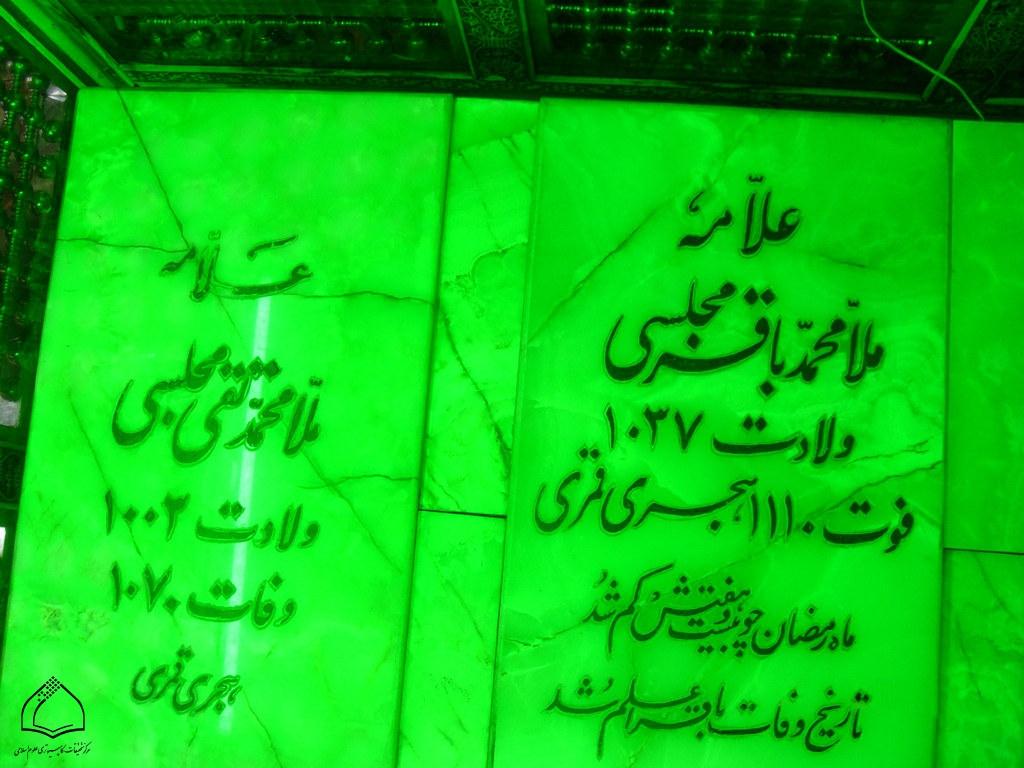 علّامه
ملّا محمّد باقر مجلسی
ولادت ۱۰۳۷
فوت ۱۱۱۰ هجری قمری
ماه رمضان چو بیست و هفتش کم شد
تاریخ وفات باقر اعلم شد
علّامه
ملّا محمّد تقی مجلسی
ولادت ۱۰۰۳
وفات ۱۰۷۰
هجری قمری
مرکز تحقیقات کامپیوتری علوم اسلامی